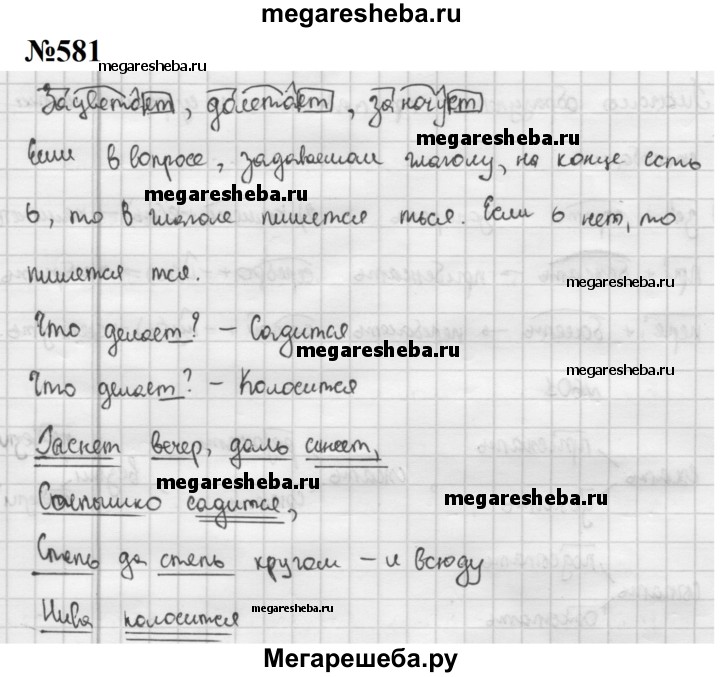 megaresheba.ru
№581
megaresheba.ru
Зацветает, долетает, заночует
megaresheba.ru
Если в вопросе, задаваемом глаголу, на конце есть
megaresheba.ru
ь, то в глаголе пишется ться. Если ь нет, то
пишется тся.
megaresheba.ru
Что делает? – Садится
megaresheba.ru
Что делает? – Колосится
megaresheba.ru
Гаснет вечер, даль синеет,
Солнышко садится,
megaresheba.ru
Степь да степь кругом – и всюду
Нива колосится
megaresheba.ru
Мегарешеба.ру